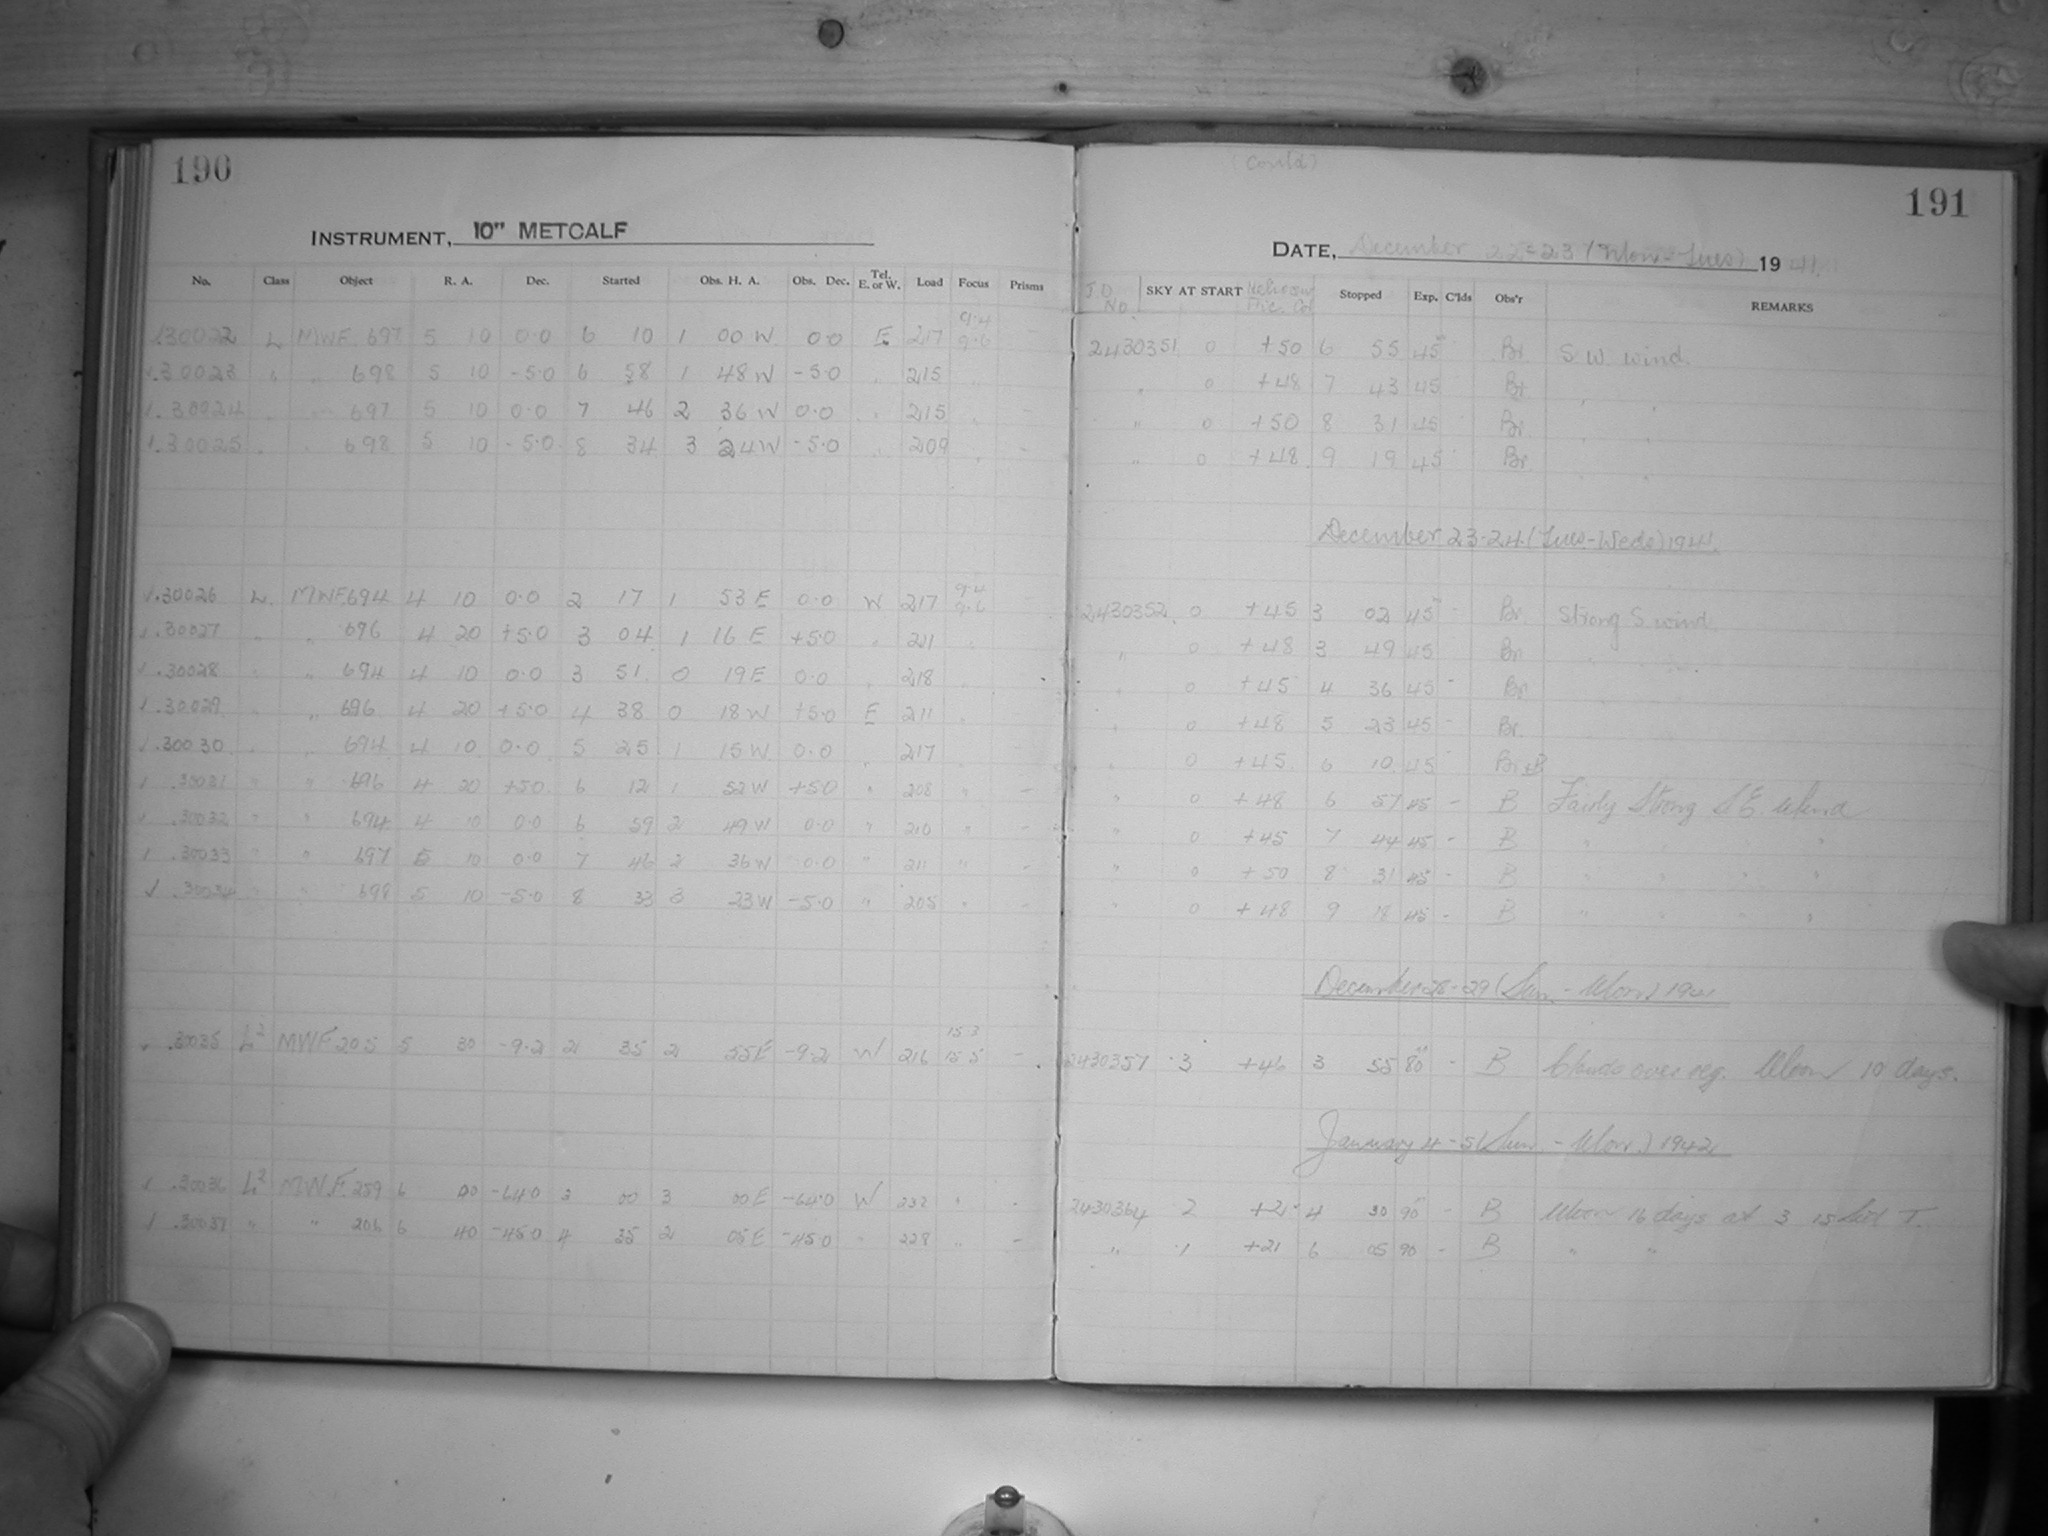 190
INSTRUMENT, 10" METCALF
No. Class Object R. A. Dec. Started Obs. H. A. Obs. Dec. Tel. E. or W. Load Focus Prisms
9.4
.30022 L MWF. 697 5 10 0.0 6 10 1 00 W 0.0 E 217 9.6
.30023 " " 698 5 10 -5.0 6 58 1 48 W -5.0 " 215 "
.30024 " " 697 5 10 0.0 7 46 2 36 W 0.0 " 215 " -
.30025 " " 698 5 10 -5.0 8 34 3 24 W -5.0 " 209 " -
9.4
.30026 L. MWF. 694 4 10 0.0 2 17 1 53 E 0.0 W 217 9.6
.30027 " " 696 4 20 +5.0 3 04 1 16 E +5.0 " 211 "
.30028 " " 694 4 10 0.0 3 51 0 19 E 0.0 " 218 "
.30029 " " 696 4 20 +5.0 4 38 0 18 W +5.0 E 211 "
.30030 " " 694 4 10 0.0 5 25 1 15 W 0.0 " 217 "
.30031 " " 696 4 20 +5.0 6 12 1 52 W +5.0 " 208 " -
.30032 " " 694 4 10 0.0 6 59 2 49 W 0.0 " 210 " -
.30033 " " 697 5 10 0.0 7 46 2 36 W 0.0 " 211 " -
.30034 " " 698 5 10 -5.0 8 33 3 23 W -5.0 " 205 " -
15.3
.30035 L2 MWF 205 5 30 -9.2 2 35 2 55 E -9.2 W 216 15.5 -
.30036 L2 MWF. 259 6 00 -64.0 3 00 3 00 E -64.0 W 232 " -
.30037 " " 206 6 40 -45.0 4 35 2 05 E -45.0 " 228 " -
(Cont'd)
191
DATE, December 22-23 (Mon-Tues) 1941
J.D. No. SKY AT START Stopped Exp. C'lds Obs'r REMARKS
2430351 0 +50 6 55 45 Br. S W. wind.
" 0 +48 7 43 45 Br. " "
" 0 +50 8 31 45 Br. " "
" 0 +48 9 19 45 Br. " "
December 23-24 (Tues-Weds) 1941.
2430352 0 +45 3 02 45 - Br. Strong S wind.
" 0 +48 3 49 45 Br. " " "
" 0 +45 4 36 45 - Br.
" 0 +48 5 23 45 - Br.
" 0 +45 6 10 45 Br+B
" 0 +48 6 57 45 - B Fairly Strong S.E. Wind
" 0 +45 7 44 45 - B " " " "
" 0 +50 8 31 45 - B " " " "
" 0 +48 9 18 45 - B " " " "
December 28-29 (Sun. - Mon.) 1941
2430357 3 +46 3 55 80 - B Clouds over reg. Moon 10 days.
January 4-5 (Sun. - Mon.) 1942
2430364 2 +21 4 30 90 - B Moon 16 days at 3 15 Sid T.
" 1 +21 6 05 90 - B " "